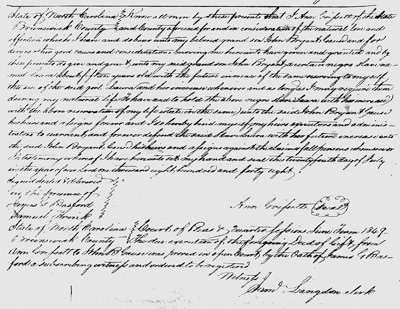 State of North Carolina } Know all men by these presents that I Ann Conpett of the State
& Brunswick County } and County aforesaid for and in consideration of the natural love and
affection which I have and do bear unto my beloved grand son John Bryant Gause and for
divers other good causes and considerations hereunto have given and granted and by
these presents do give and grant unto my said grand son John Bryant a certain negro slave na-
med Laura about fifteen years old with the future increase of the same reserving to myself
the use of the said
during my natural life To have and to hold the above negro slave Laura with her increase
with the above reserve of my life estate in the same unto the said John Bryant Gause
his heirs and assigns forever And I do hereby bind myself my heirs executors and adminis-
trators to warrant and forever defend the said slave Laura with her future increase unto
the said John Bryant Gause his heirs and assigns against the claim of all persons whomsoever
In testimony whereof I have hereunto set my hand and seal the twenty fourth day of July
in the year of our Lord one thousand eight hundred and forty eight
Signed sealed & delivered }
in the presence of }
James G Brasford } Ann Conpett {Seal}
Samuel
State of North Carolina } Court of Pleas & Quarter Sessions June Term 1849
& Brunswick County } The due execution of the foregoing Deed of Gift, from
Ann Conpett to John B Gause was proved in open Court, by the Oath of James G Bras-
ford a subscribing witness and ordered to be registered
Witness
Langdon clerk